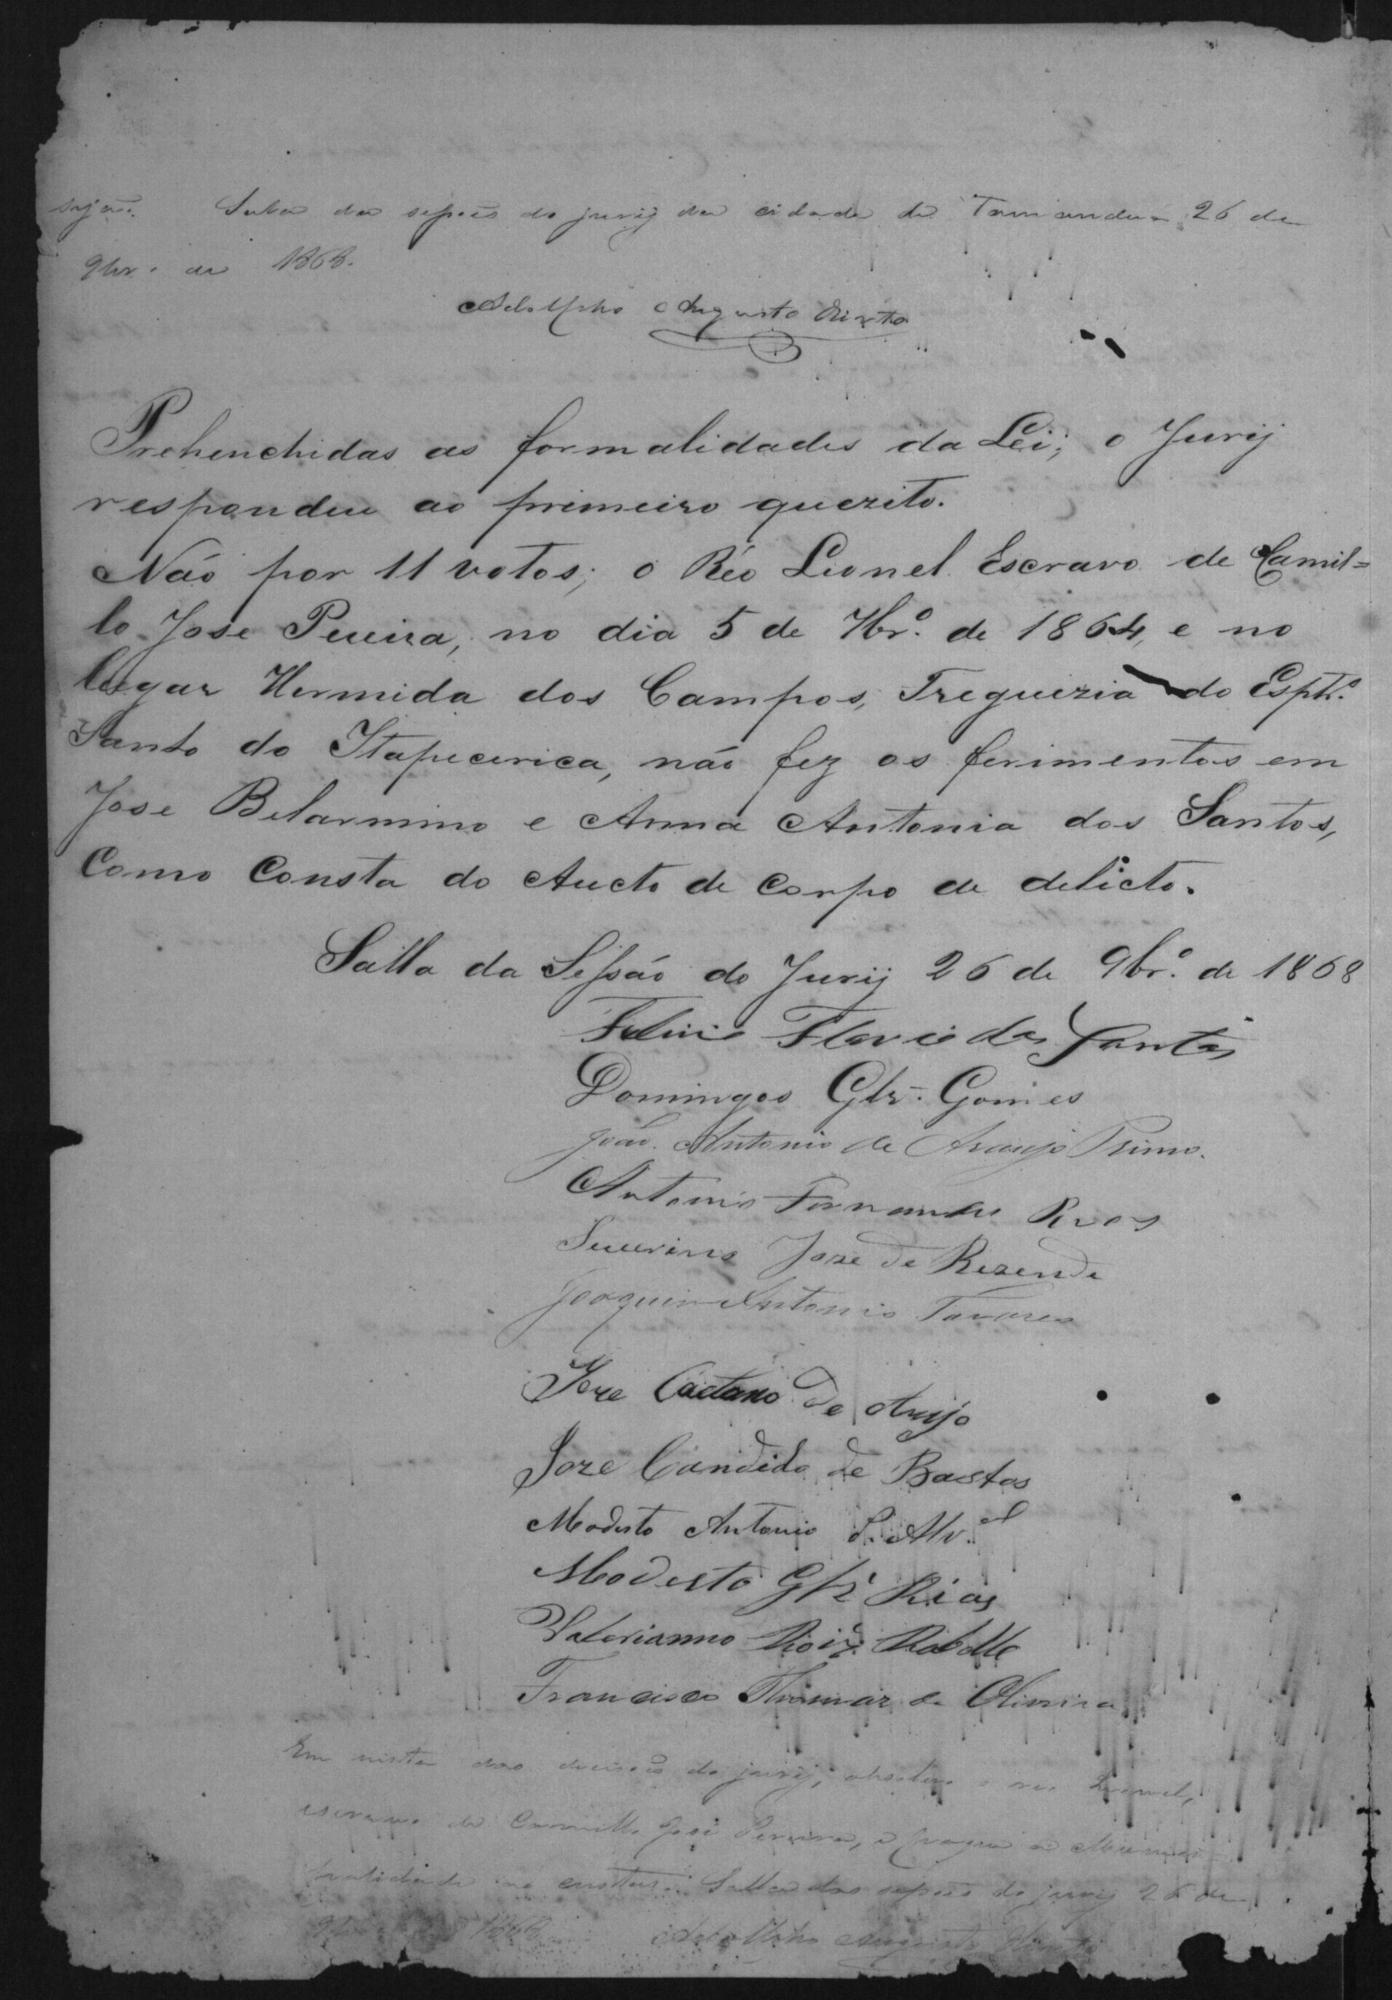 Salla das sessões do jurij da cidade de Tamanduá 26 de
9br.º de 1868.
Adolpho Augusto
Prehenchidas as formalidades da Lei; o Jurij
respondeu ao primeiro quezito.
Não por 11 votos; o Réo Lionel Escravo de Camil=
lo Jose Pereira, no dia 5 de 7br.º de 1864, e no
lugar Hermida dos Campos, Freguezia do Espt.º
Santo do Itapecerica, não fez os ferimentos em
Jose Belarmino e Anna Antonia dos Santos,
Como Consta do Aucto de Corpo de delicto.
Salla da Sessão do Jurij 26 de 9br.º de 1868
Flavio dos Santos
Domingos Glz. Gomes
João Antonio de Araujo Primo.
Antonio Fernandes
Severino Jose de Rezende
Joaquim Antonio Tavares
Joze Caetano de Araujo
Joze Candido de Bastos
Modesto Antonio
Modesto Glz Rios
Valerianno Roiz Rabello
Francisco Thomaz de Oliveira
Em vista das decisões do jurij, absolvo o réo Lionel,
escravo de Camillo José Pereira, e pague a Munici
palidade as custas. Salla das sessões do jurij 26 de
1868 Adolpho Augusto